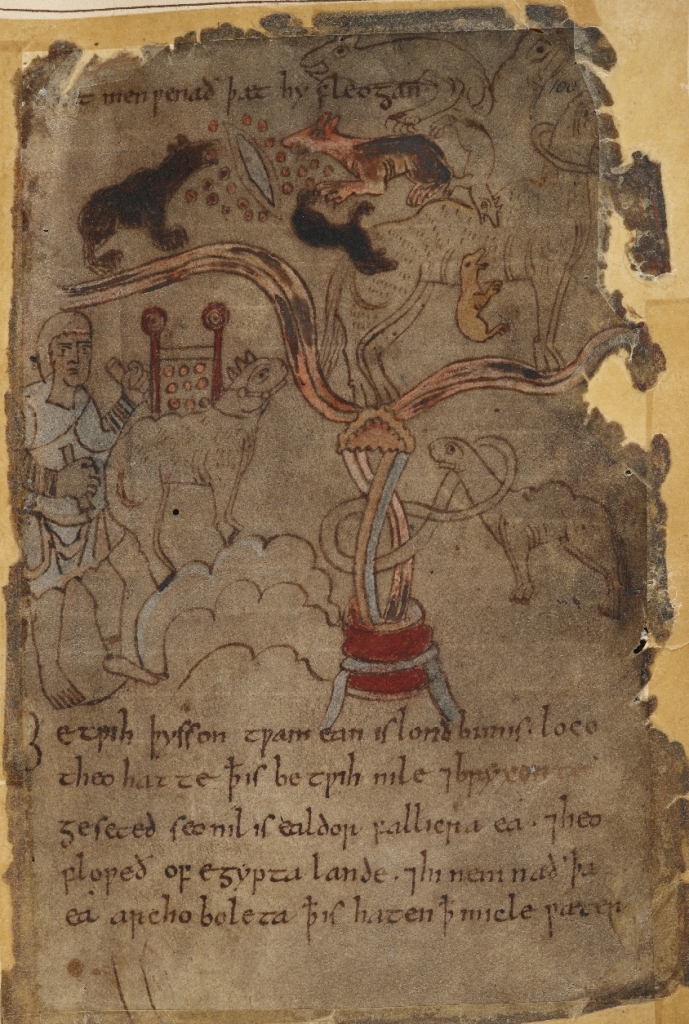 men ƿenað þæt hy fleogan
Betƿih þysson tƿam ean is lond bunis. loco
theo hatte ꝥ is betƿih nile ⁊ bryxonte
geseted seo nil is ealdor fallicra ea. ⁊ heo
floƿeð of egypta lande. ⁊ hi nemnað þa
ea archoboleta ꝥ is haten ꝥ micle ƿæter